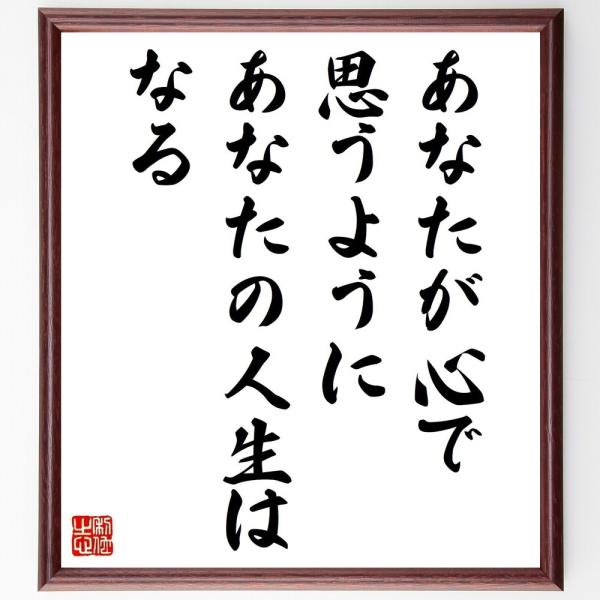 あなたが心で
思うように
あなたの人生は
なる